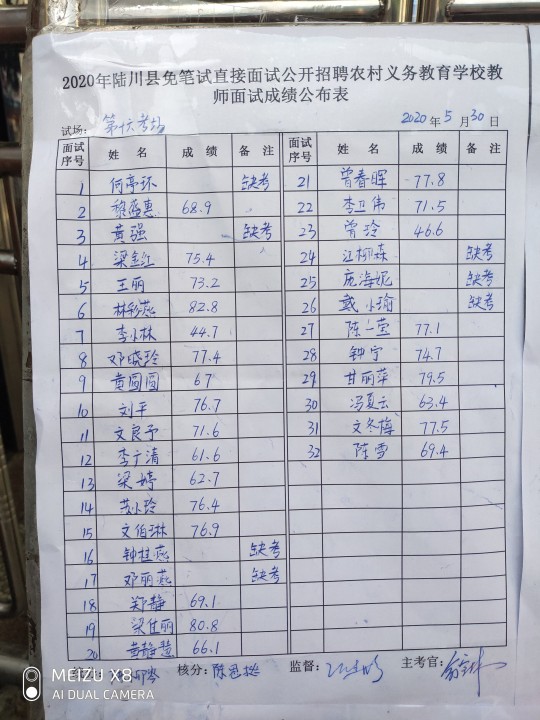 2020年陆川县免笔试直接面试公开招聘农村义务教育学校教
师面试成绩公布表
试场: 第十六考场 2020年5月30日
面试序号 姓 名 成 绩 备 注
1 何亭环 缺考
2 黎盛惠 68.9
3 黄强 缺考
4 梁金红 75.4
5 王丽 73.2
6 林彩燕 82.8
7 李小林 44.7
8 邓晓玲 77.4
9 黄圆圆 67
10 刘平 76.7
11 文良予 71.6
12 李广清 61.6
13 梁婷 62.7
14 苏小玲 76.4
15 文伯琳 76.9
16 钟桂燕 缺考
17 邓丽燕 缺考
18 郑静 69.1
19 梁仕丽 80.8
20 黄静慧 66.1
面试序号 姓 名 成 绩 备 注
21 曾春晖 77.8
22 李卫伟 71.5
23 曾玲 46.6
24 江柳森 缺考
25 庞海妮 缺考
26 戴小瑜 缺考
27 陈一莹 77.1
28 钟宁 74.7
29 甘丽萍 79.5
30 冯夏云 63.4
31 文冬梅 77.5
32 陈雪 69.4
核分: 监督: 主考官:
MEIZU X8
AI DUAL CAMERA